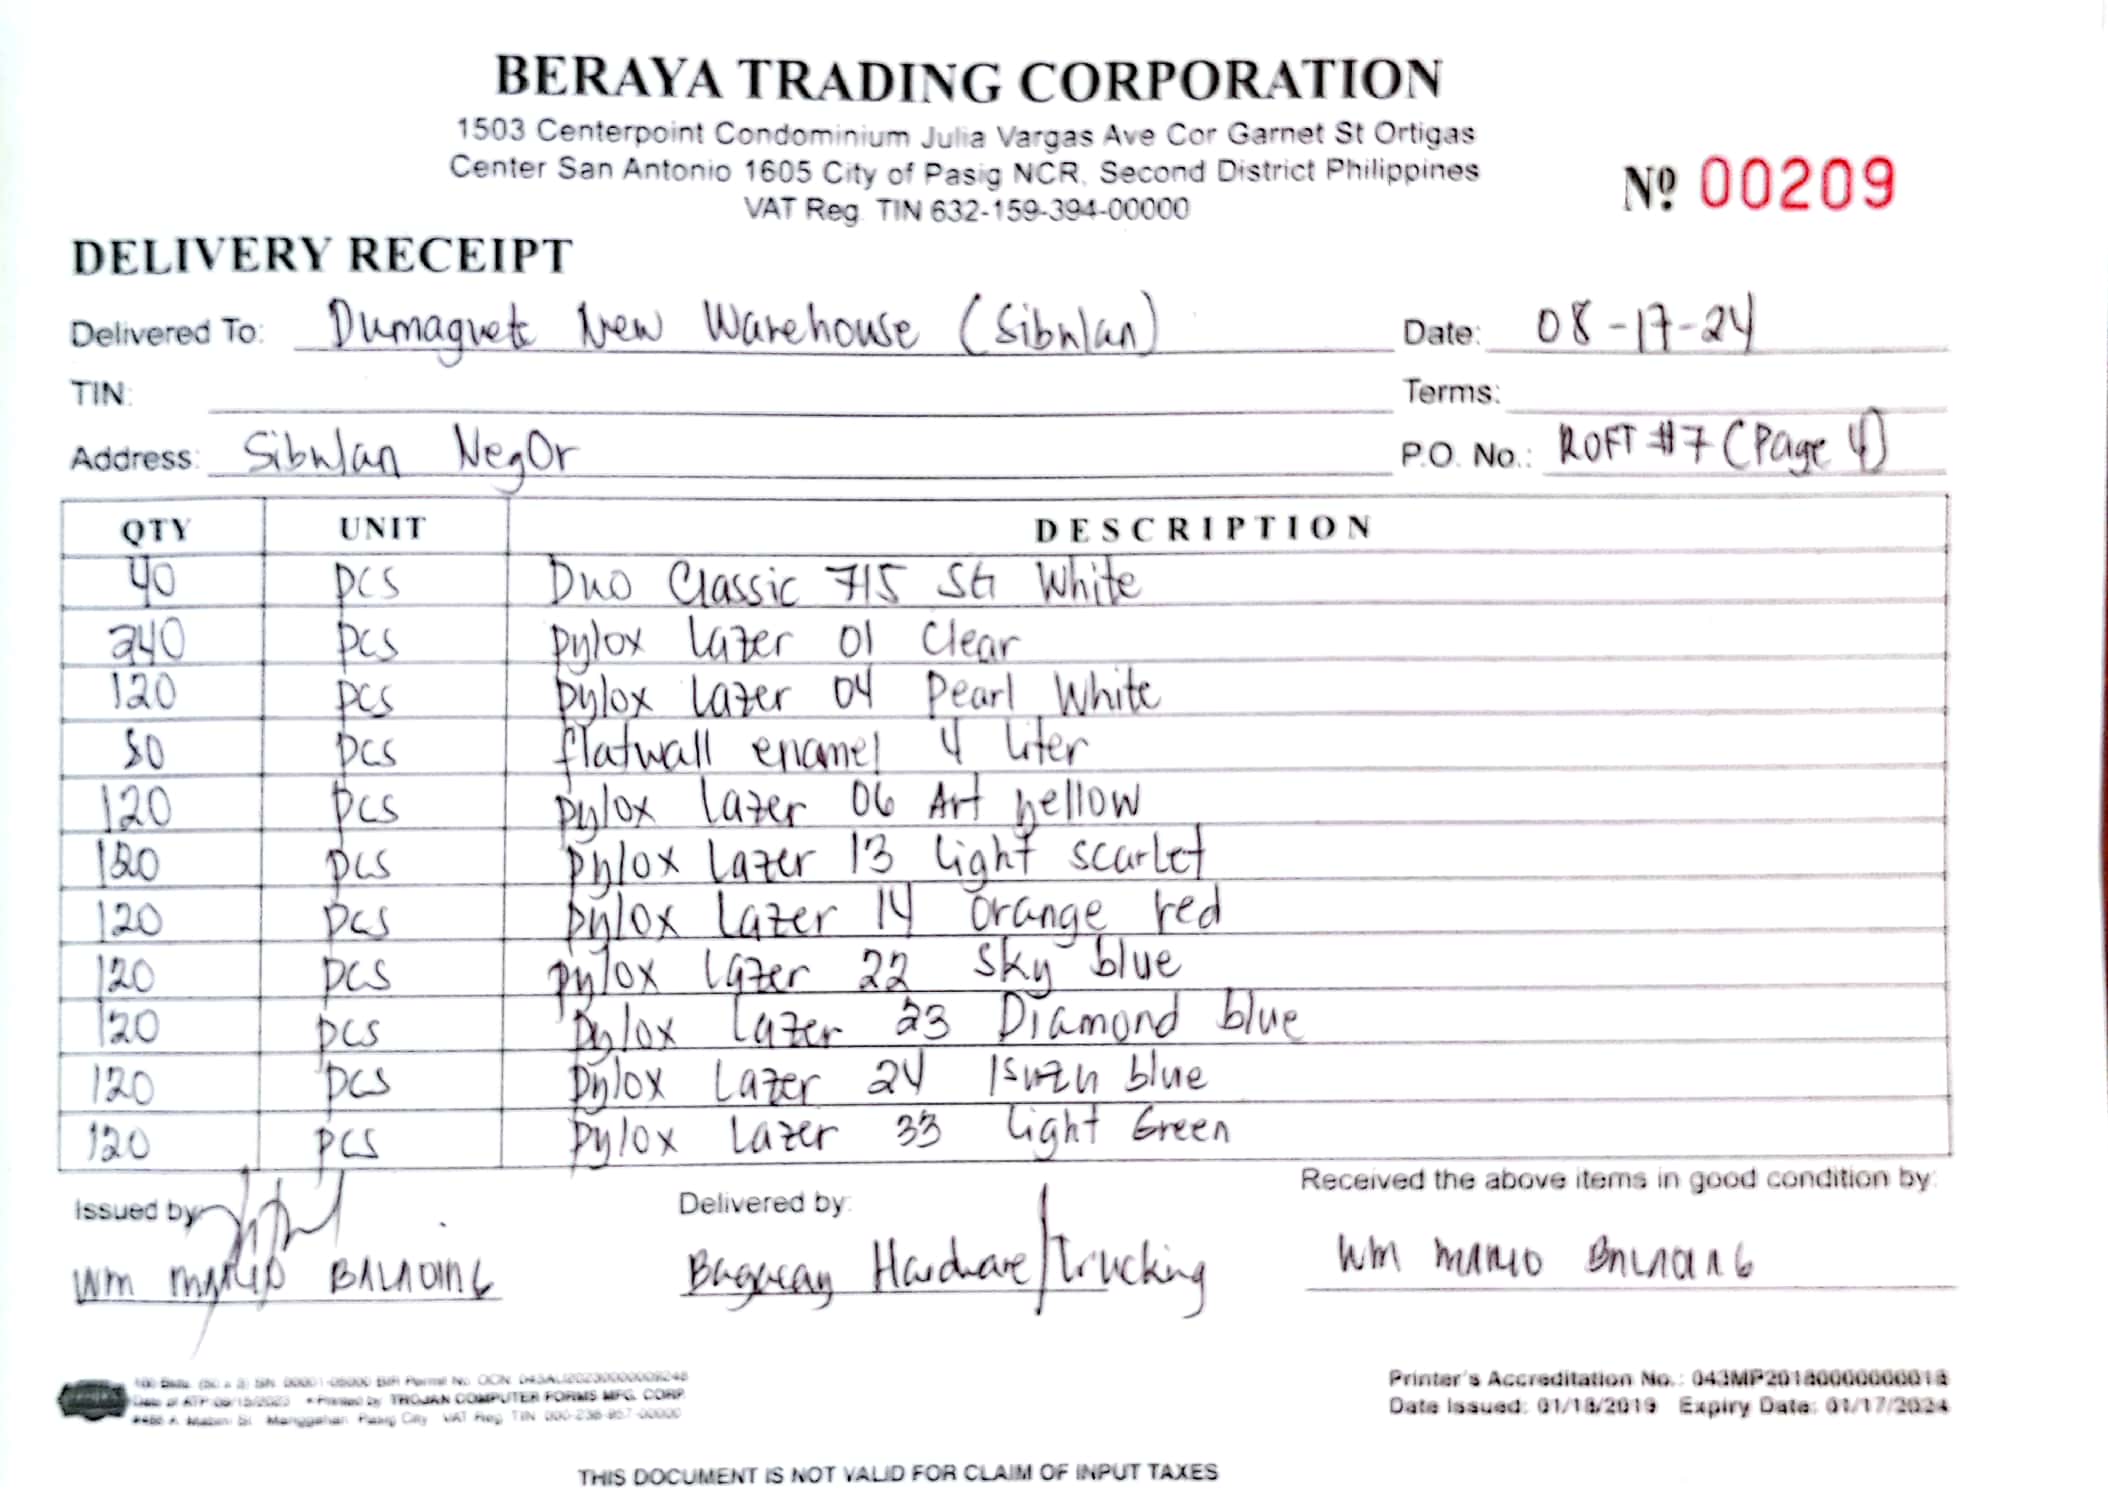 BERAYA TRADING CORPORATION
1503 Centerpoint Condominium Julia Vargas Ave Cor Garnet St Ortigas
Center San Antonio 1605 City of Pasig NCR, Second District Philippines
VAT Reg. TIN 632-159-394-00000
Nº 00209
DELIVERY RECEIPT
Delivered To: Dumaguete New Warehouse (Sibulan) Date: 08-17-24
TIN: Terms:
Address: Sibulan NegOr P.O. No.: ROFT #7 (Page 4)
QTY UNIT DESCRIPTION
40 pcs Duo Classic 715 SG White
240 pcs pylox lazer 01 Clear
120 pcs pylox lazer 04 Pearl White
pcs flatwall enamel 4 liter
120 pcs pylox lazer 06 Art yellow
120 pcs pylox lazer 13 light scarlet
120 pcs pylox lazer 14 orange red
120 pcs pylox lazer 22 sky blue
120 pcs pylox lazer 23 Diamond blue
120 pcs pylox lazer 24 Isuzu blue
120 pcs pylox lazer 33 light Green
Issued by: Delivered by: Received the above items in good condition by:
WM MARIO BALADING Bagacay Hardware/Trucking WM MARIO BALADING
100 Bklts. (50 x 3) S/N. 00001-05000 BIR Permit No. OCN.
Date of ATP • Printed by: TROJAN COMPUTER FORMS MFG. CORP.
#486 A. Mabini St. Manggahan Pasig City VAT Reg. TIN 000-238-957-00000
Printer's Accreditation No.: 043MP20180000000018
Date Issued: 01/18/2019 Expiry Date: 01/17/2024
THIS DOCUMENT IS NOT VALID FOR CLAIM OF INPUT TAXES